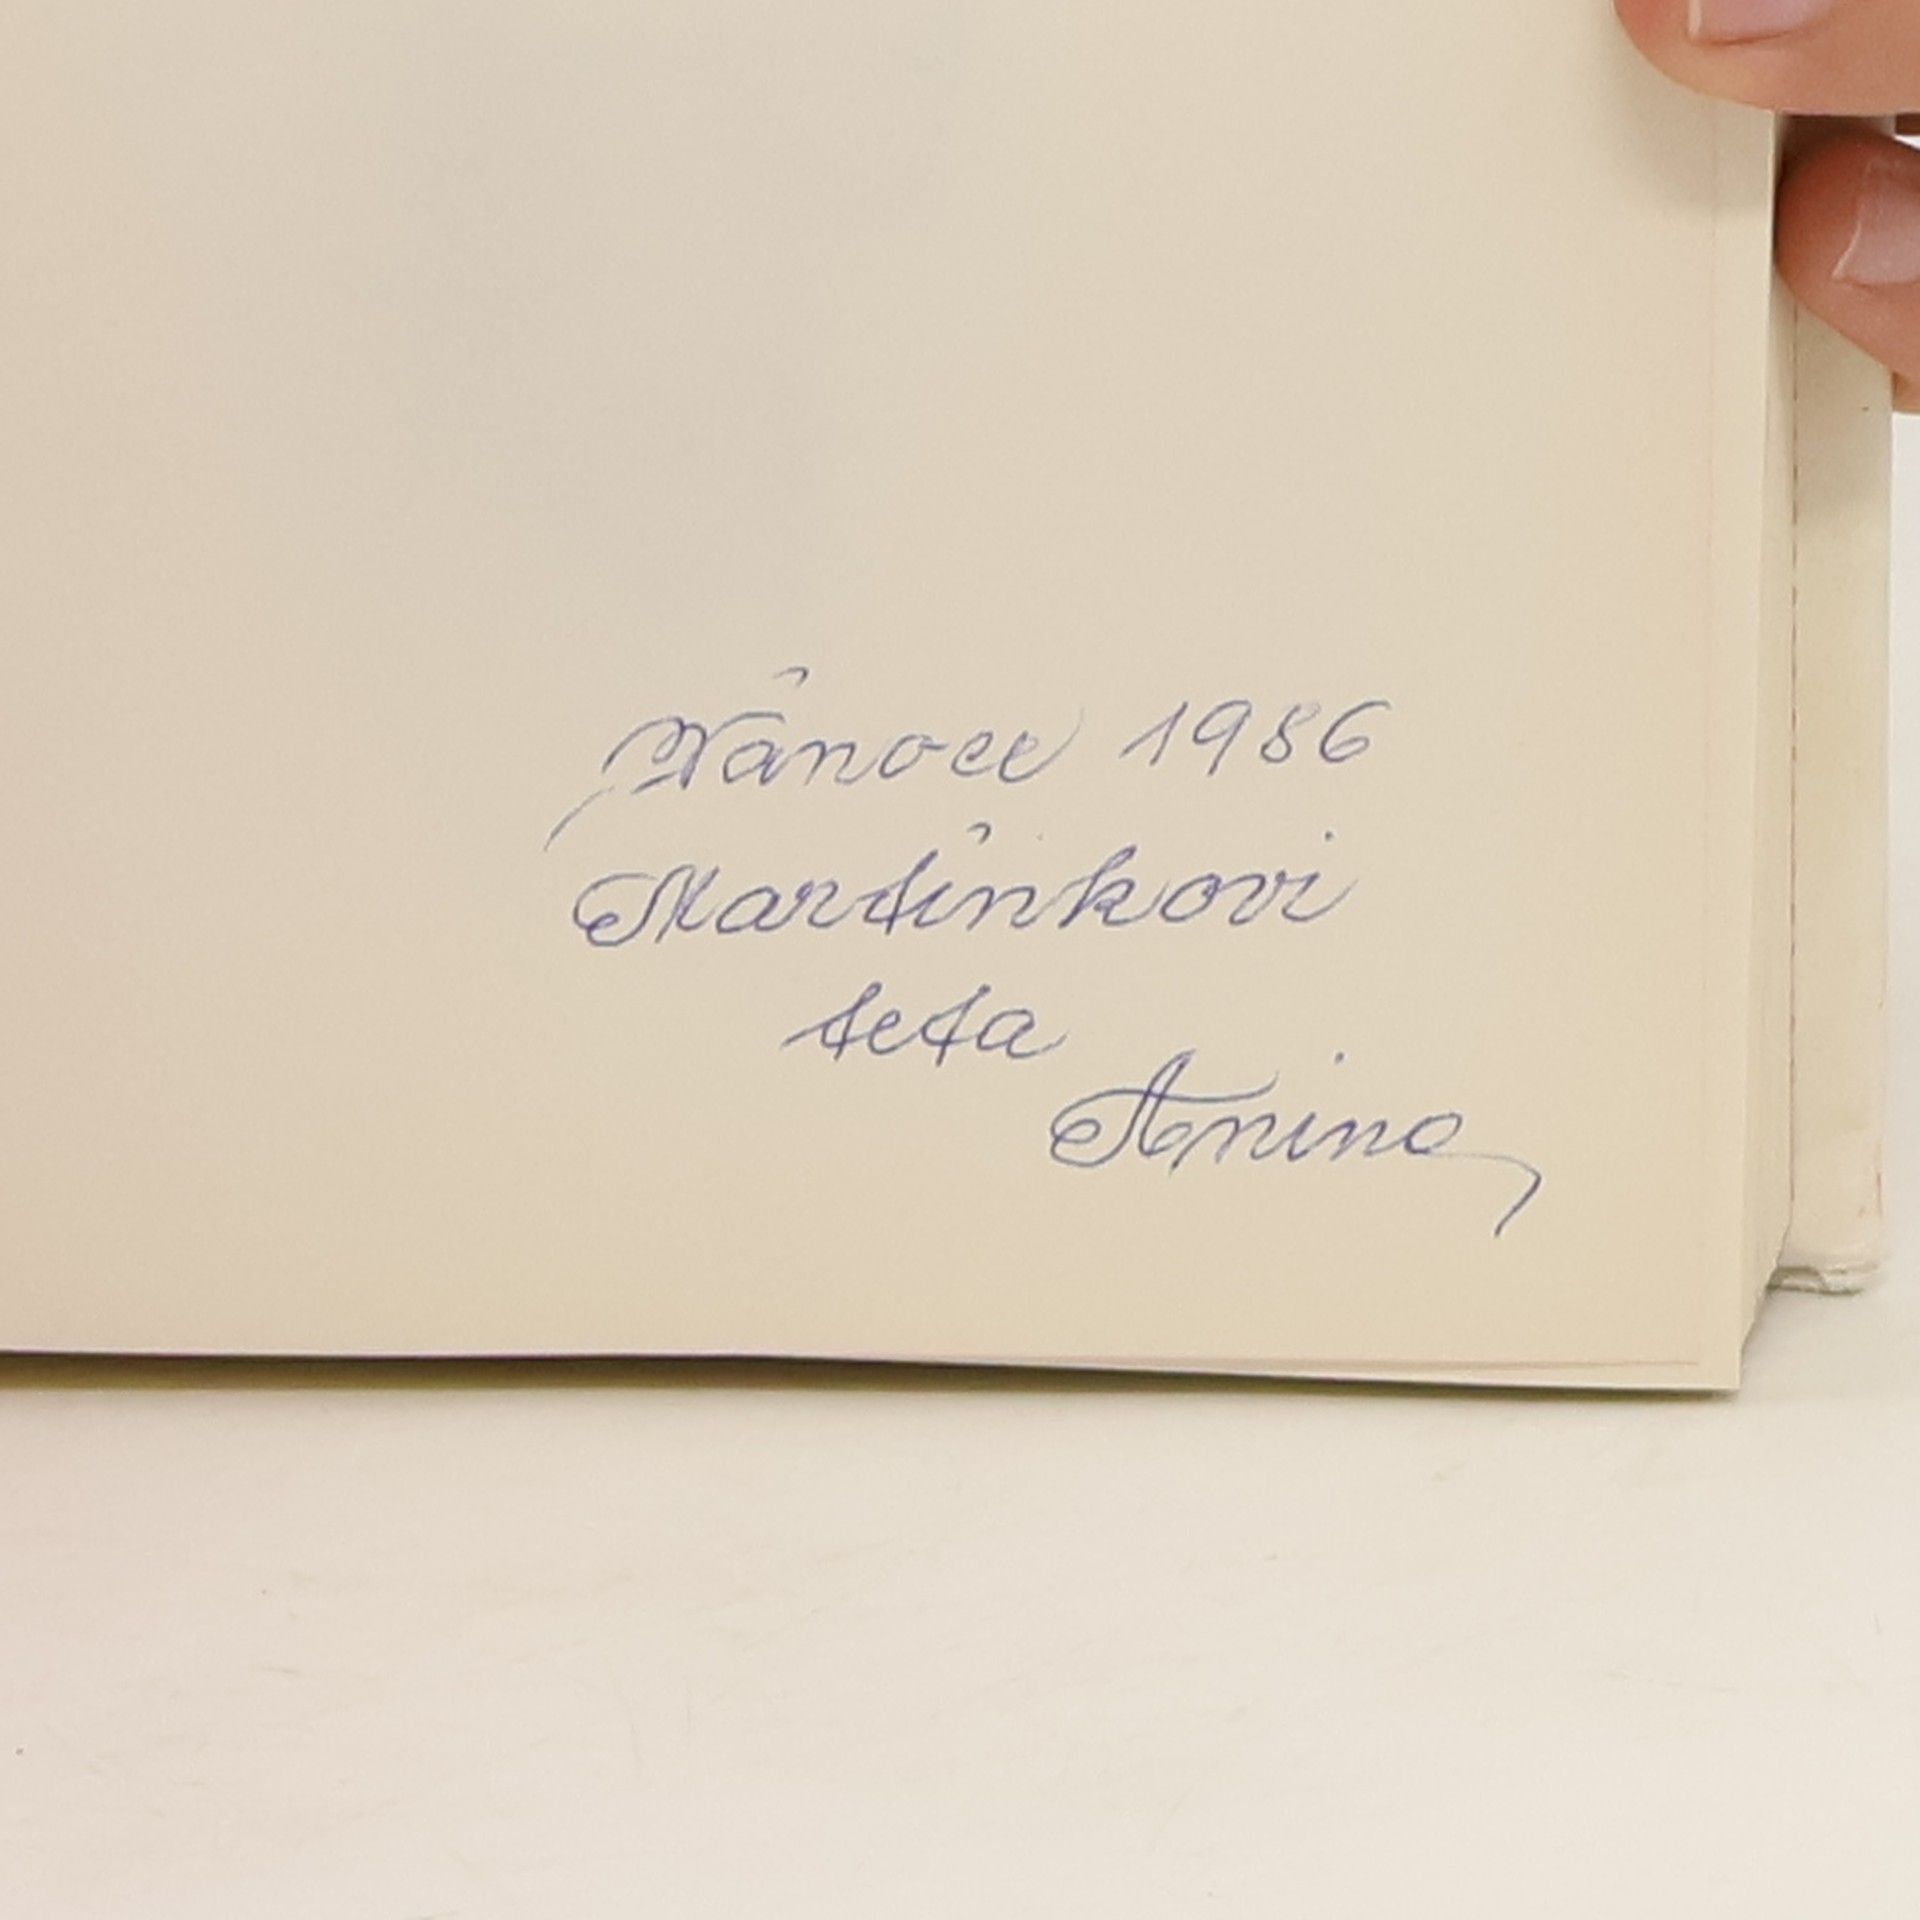 Vánoce 1986
Martínkovi
teta
Anina